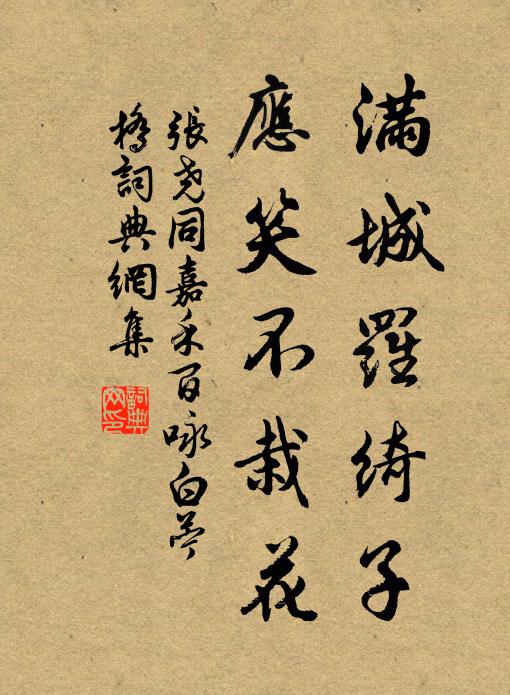 滿城羅綺子
應笑不栽花
張堯同嘉禾百咏白苧
橋詞典網集
詞典
网印